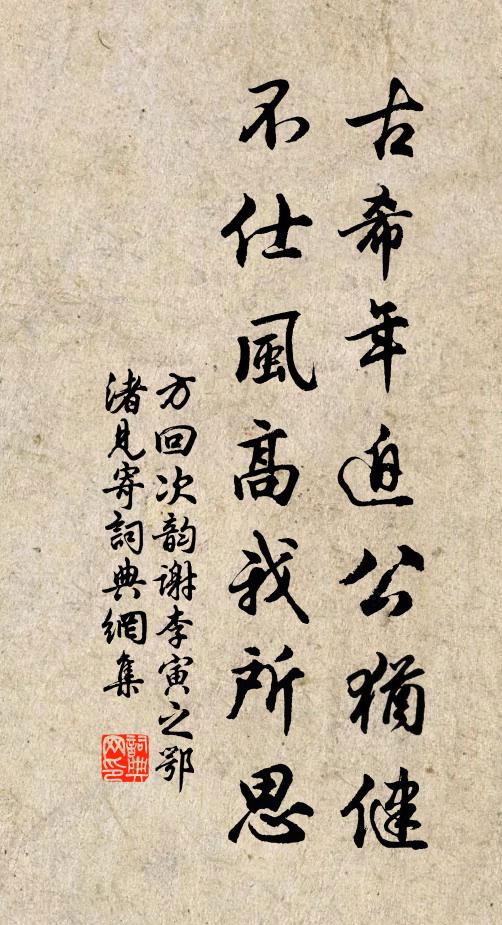 古希年迫公猶健
不仕風高我所思
方回次韵謝李寅之鄂
渚見寄詞典網集
詞典
网印